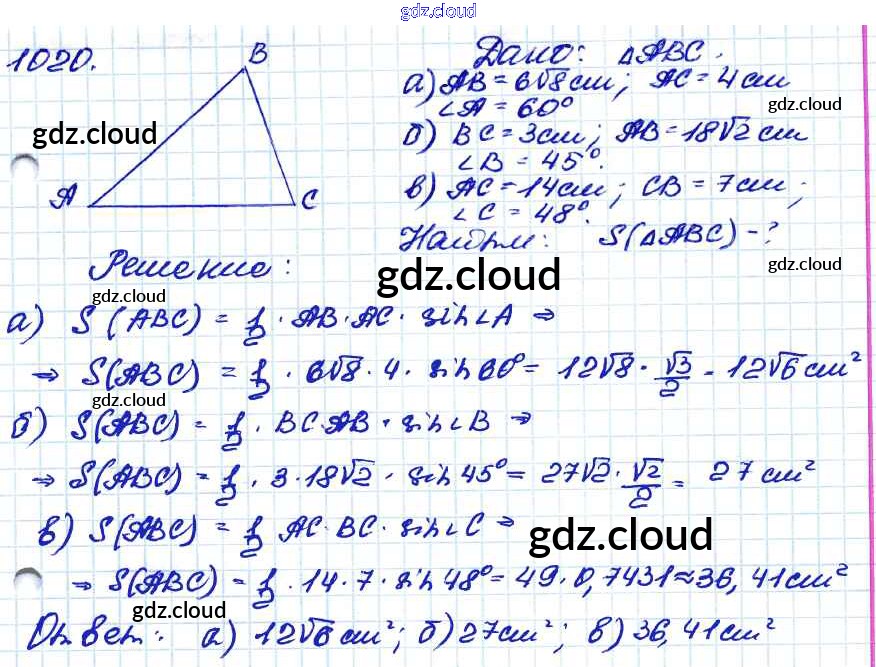 gdz.cloud
1020.
B
A
C
gdz.cloud
Дано: △ABC.
а) AB = 6√8 см; AC = 4 см
∠A = 60°
gdz.cloud
б) BC = 3 см; AB = 18√2 см
∠B = 45°.
в) AC = 14 см; CB = 7 см;
∠C = 48°.
Найти: S(△ABC) - ?
gdz.cloud
Решение:
gdz.cloud
gdz.cloud
а) S(ABC) = 1/2 · AB · AC · sin∠A ⇒
⇒ S(ABC) = 1/2 · 6√8 · 4 · sin 60° = 12√8 · √3/2 = 12√6 см²
gdz.cloud
б) S(ABC) = 1/2 · BC·AB · sin∠B ⇒
⇒ S(ABC) = 1/2 · 3 · 18√2 · sin 45° = 27√2 · √2/2 = 27 см²
в) S(ABC) = 1/2 AC · BC · sin∠C ⇒
gdz.cloud
⇒ S(ABC) = 1/2 · 14 · 7 · sin 48° = 49 · 0,7431 ≈ 36,41 см²
gdz.cloud
Ответ: а) 12√6 см²; б) 27 см²; в) 36,41 см²